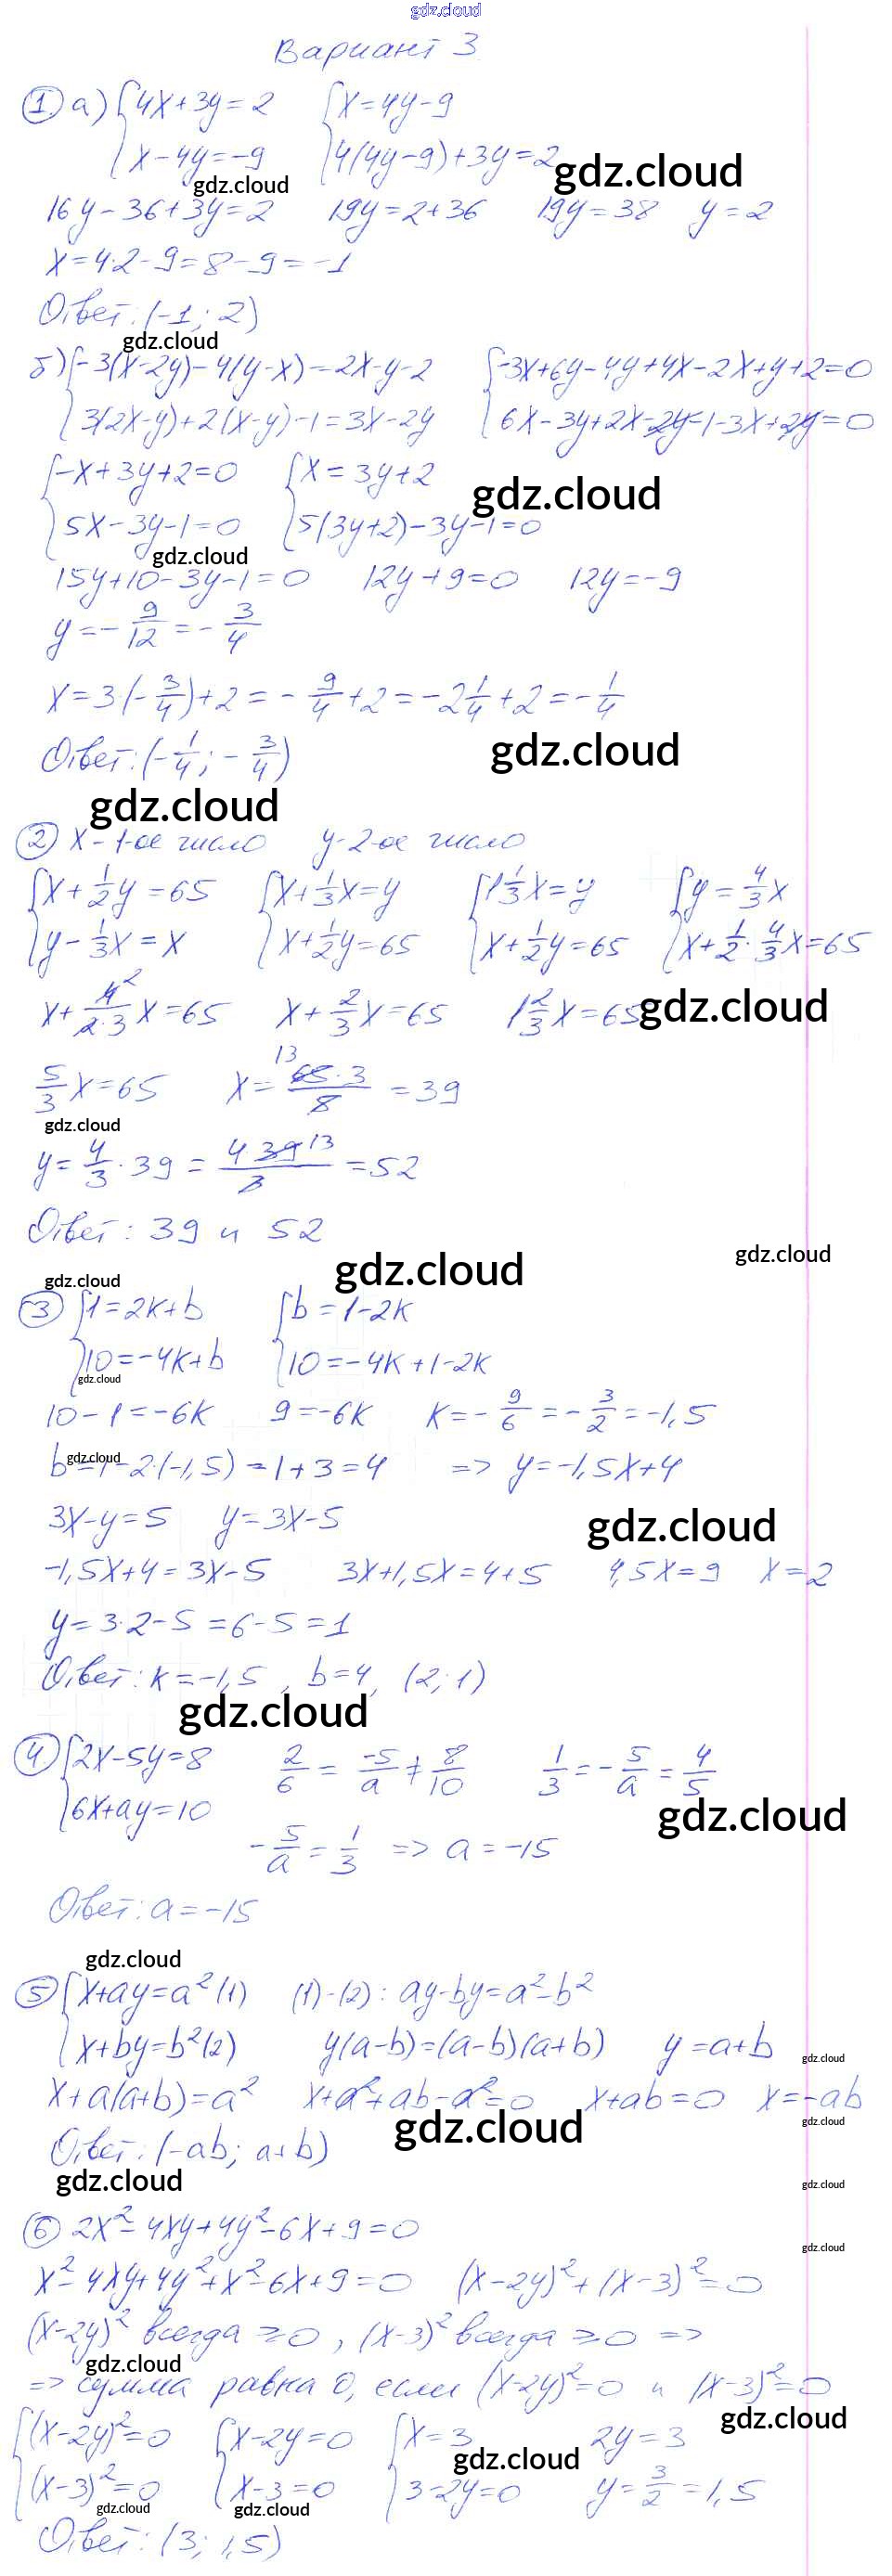 gdz.cloud
Вариант 3
1 а) {4x+3y=2 {x=4y-9
{x-4y=-9 {4(4y-9)+3y=2 gdz.cloud
gdz.cloud
16y-36+3y=2 19y=2+36 19y=38 y=2
x=4·2-9=8-9=-1
Ответ: (-1; 2)
gdz.cloud
б) {-3(x-2y)-4(y-x)=2x-y-2 {-3x+6y-4y+4x-2x+y+2=0
{3(2x-y)+2(x-y)-1=3x-2y {6x-3y+2x-2y-1-3x+2y=0
{-x+3y+2=0 {x=3y+2
gdz.cloud
{5x-3y-1=0 {5(3y+2)-3y-1=0
gdz.cloud
15y+10-3y-1=0 12y+9=0 12y=-9
y=-9/12=-3/4
x=3·(-3/4)+2=-9/4+2=-2 1/4+2=-1/4
Ответ: (-1/4; -3/4) gdz.cloud
gdz.cloud
2 x-1-ое число y-2-ое число
{x+1/2y=65 {x+1/3x=y {1 1/3x=y {y=4/3x
{y-1/3x=x {x+1/2y=65 {x+1/2y=65 {x+1/2·4/3x=65
x+4²/2·3 x=65 x+2/3x=65 1 2/3x=65 gdz.cloud
5/3x=65 x=13 65·3/5=39
gdz.cloud
y=4/3·39=4 39 13/3=52
Ответ: 39 и 52
gdz.cloud
gdz.cloud
gdz.cloud
3 {1=2k+b {b=1-2k
{10=-4k+b {10=-4k+1-2k
gdz.cloud
10-1=-6k 9=-6k k=-9/6=-3/2=-1,5
gdz.cloud
b=1-2·(-1,5)=1+3=4 => y=-1,5x+4
3x-y=5 y=3x-5 gdz.cloud
-1,5x+4=3x-5 3x+1,5x=4+5 4,5x=9 x=2
y=3·2-5=6-5=1
Ответ: k=-1,5, b=4, (2; 1)
gdz.cloud
4 {2x-5y=8 2/6=-5/a≠8/10 1/3=-5/a=4/5
{6x+ay=10 gdz.cloud
-5/a=1/3 => a=-15
Ответ: a=-15
gdz.cloud
5 {x+ay=a² (1) (1)-(2): ay-by=a²-b²
{x+by=b² (2) y(a-b)=(a-b)(a+b) y=a+b
gdz.cloud
x+a(a+b)=a² x+a²+ab-a²=0 x+ab=0 x=-ab
gdz.cloud
gdz.cloud
Ответ: (-ab; a+b)
gdz.cloud
gdz.cloud
6 2x²-4xy+4y²-6x+9=0
gdz.cloud
x²-4xy+4y²+x²-6x+9=0 (x-2y)²+(x-3)²=0
(x-2y)² всегда ≥0, (x-3)² всегда ≥0 =>
gdz.cloud
=> сумма равна 0, если (x-2y)²=0 и (x-3)²=0
gdz.cloud
{(x-2y)²=0 {x-2y=0 {x=3 2y=3
gdz.cloud
{(x-3)²=0 {x-3=0 {3-2y=0 y=3/2=1,5
gdz.cloud gdz.cloud
Ответ: (3; 1,5)